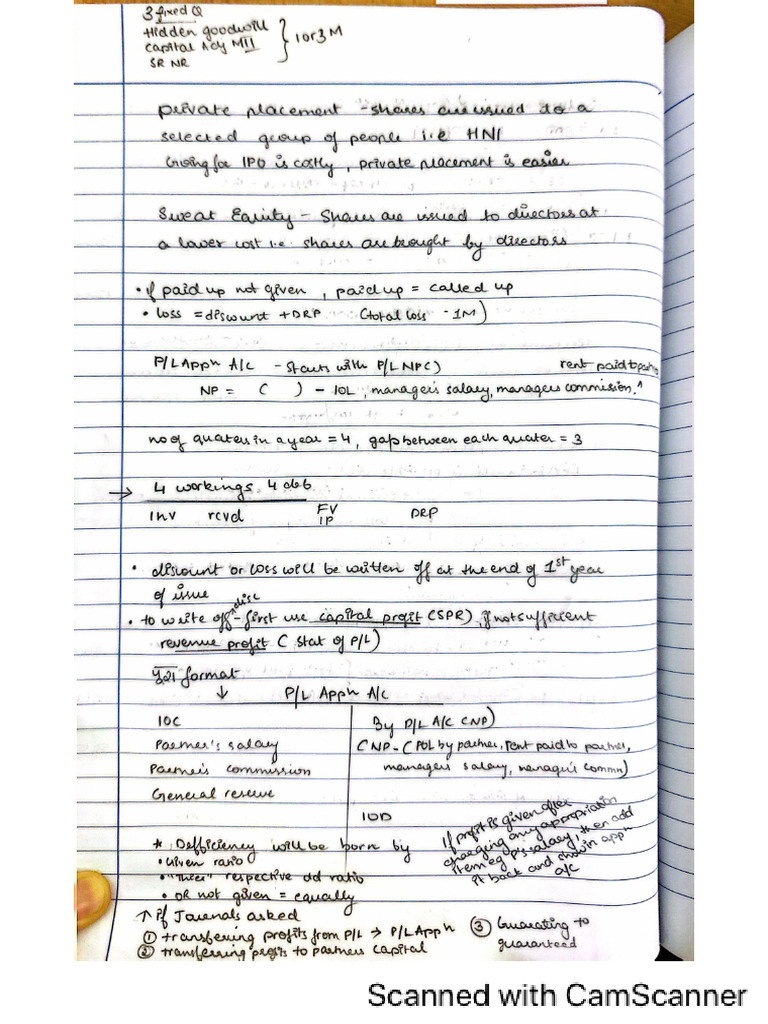 3 fixed Q
Hidden goodwill
capital Acy MII } 1 or 3 M
SR NR
private placement - shares are issued to a
selected group of people i.e HNI
Going for IPO is costly, private placement is easier
Sweat Equity - Shares are issued to directors at
a lower cost i.e. shares are brought by directors
• if paid up not given, paid up = called up
• loss = discount + DRP (total loss - 1M)
P/L Appn A/C - starts with P/L NP()
rent paid to partner
NP = ( ) - IOL, manager's salary, managers commission, ^
no of quaters in a year = 4, gap between each quater = 3
→ 4 workings 4 deb
Inv rcvd FV DRP
IP
• discount or loss will be written off at the end of 1st year
of issue
• to write off ^disc - first use capital profit (SPR), if not sufficient
revenue profit ( Stat of P/L)
format
↓ P/L Appn A/C
IOC By P/L A/C (NP)
Partner's salary (NP - ( IOL by partner, rent paid to partner,
Partner's commission managers salary, manager's commn)
General reserve
IOD
If profit is given after
charging any appropriation
item eg P's salary, then add
it back and show in appn
a/c
* Defficiency will be born by
• Given ratio
• "Their" respective old ratio
• OR not given = equally
↑ if Journals asked
① transferring profits from P/L → P/L Appn ③ Guarating to
② transferring profits to partners capital guaranteed
Scanned with CamScanner